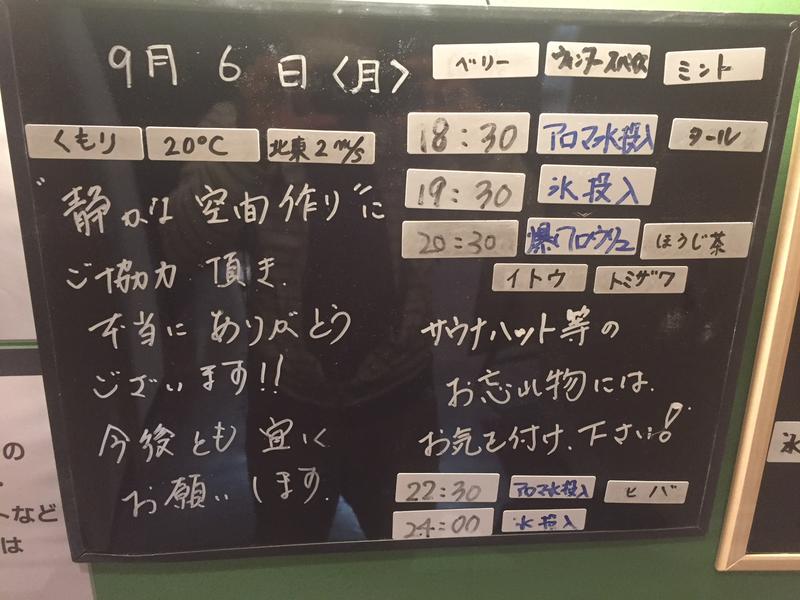 9月6日〈月〉
ベリー ウィンタースパイス ミント
くもり 20℃ 北東2m/s
18:30 アロマ水投入 タール
19:30 氷投入
20:30 爆風ロウリュ ほうじ茶
イトウ トミザワ
"静かな空間作り"に
ご協力頂き.
本当にありがとう
ございます!!
今後とも宜しく
お願いします.
サウナハット等の
お忘れ物には.
お気を付け.下さい!
22:30 アロマ水投入 ヒバ
24:00 氷投入
の
トなど
は
氷